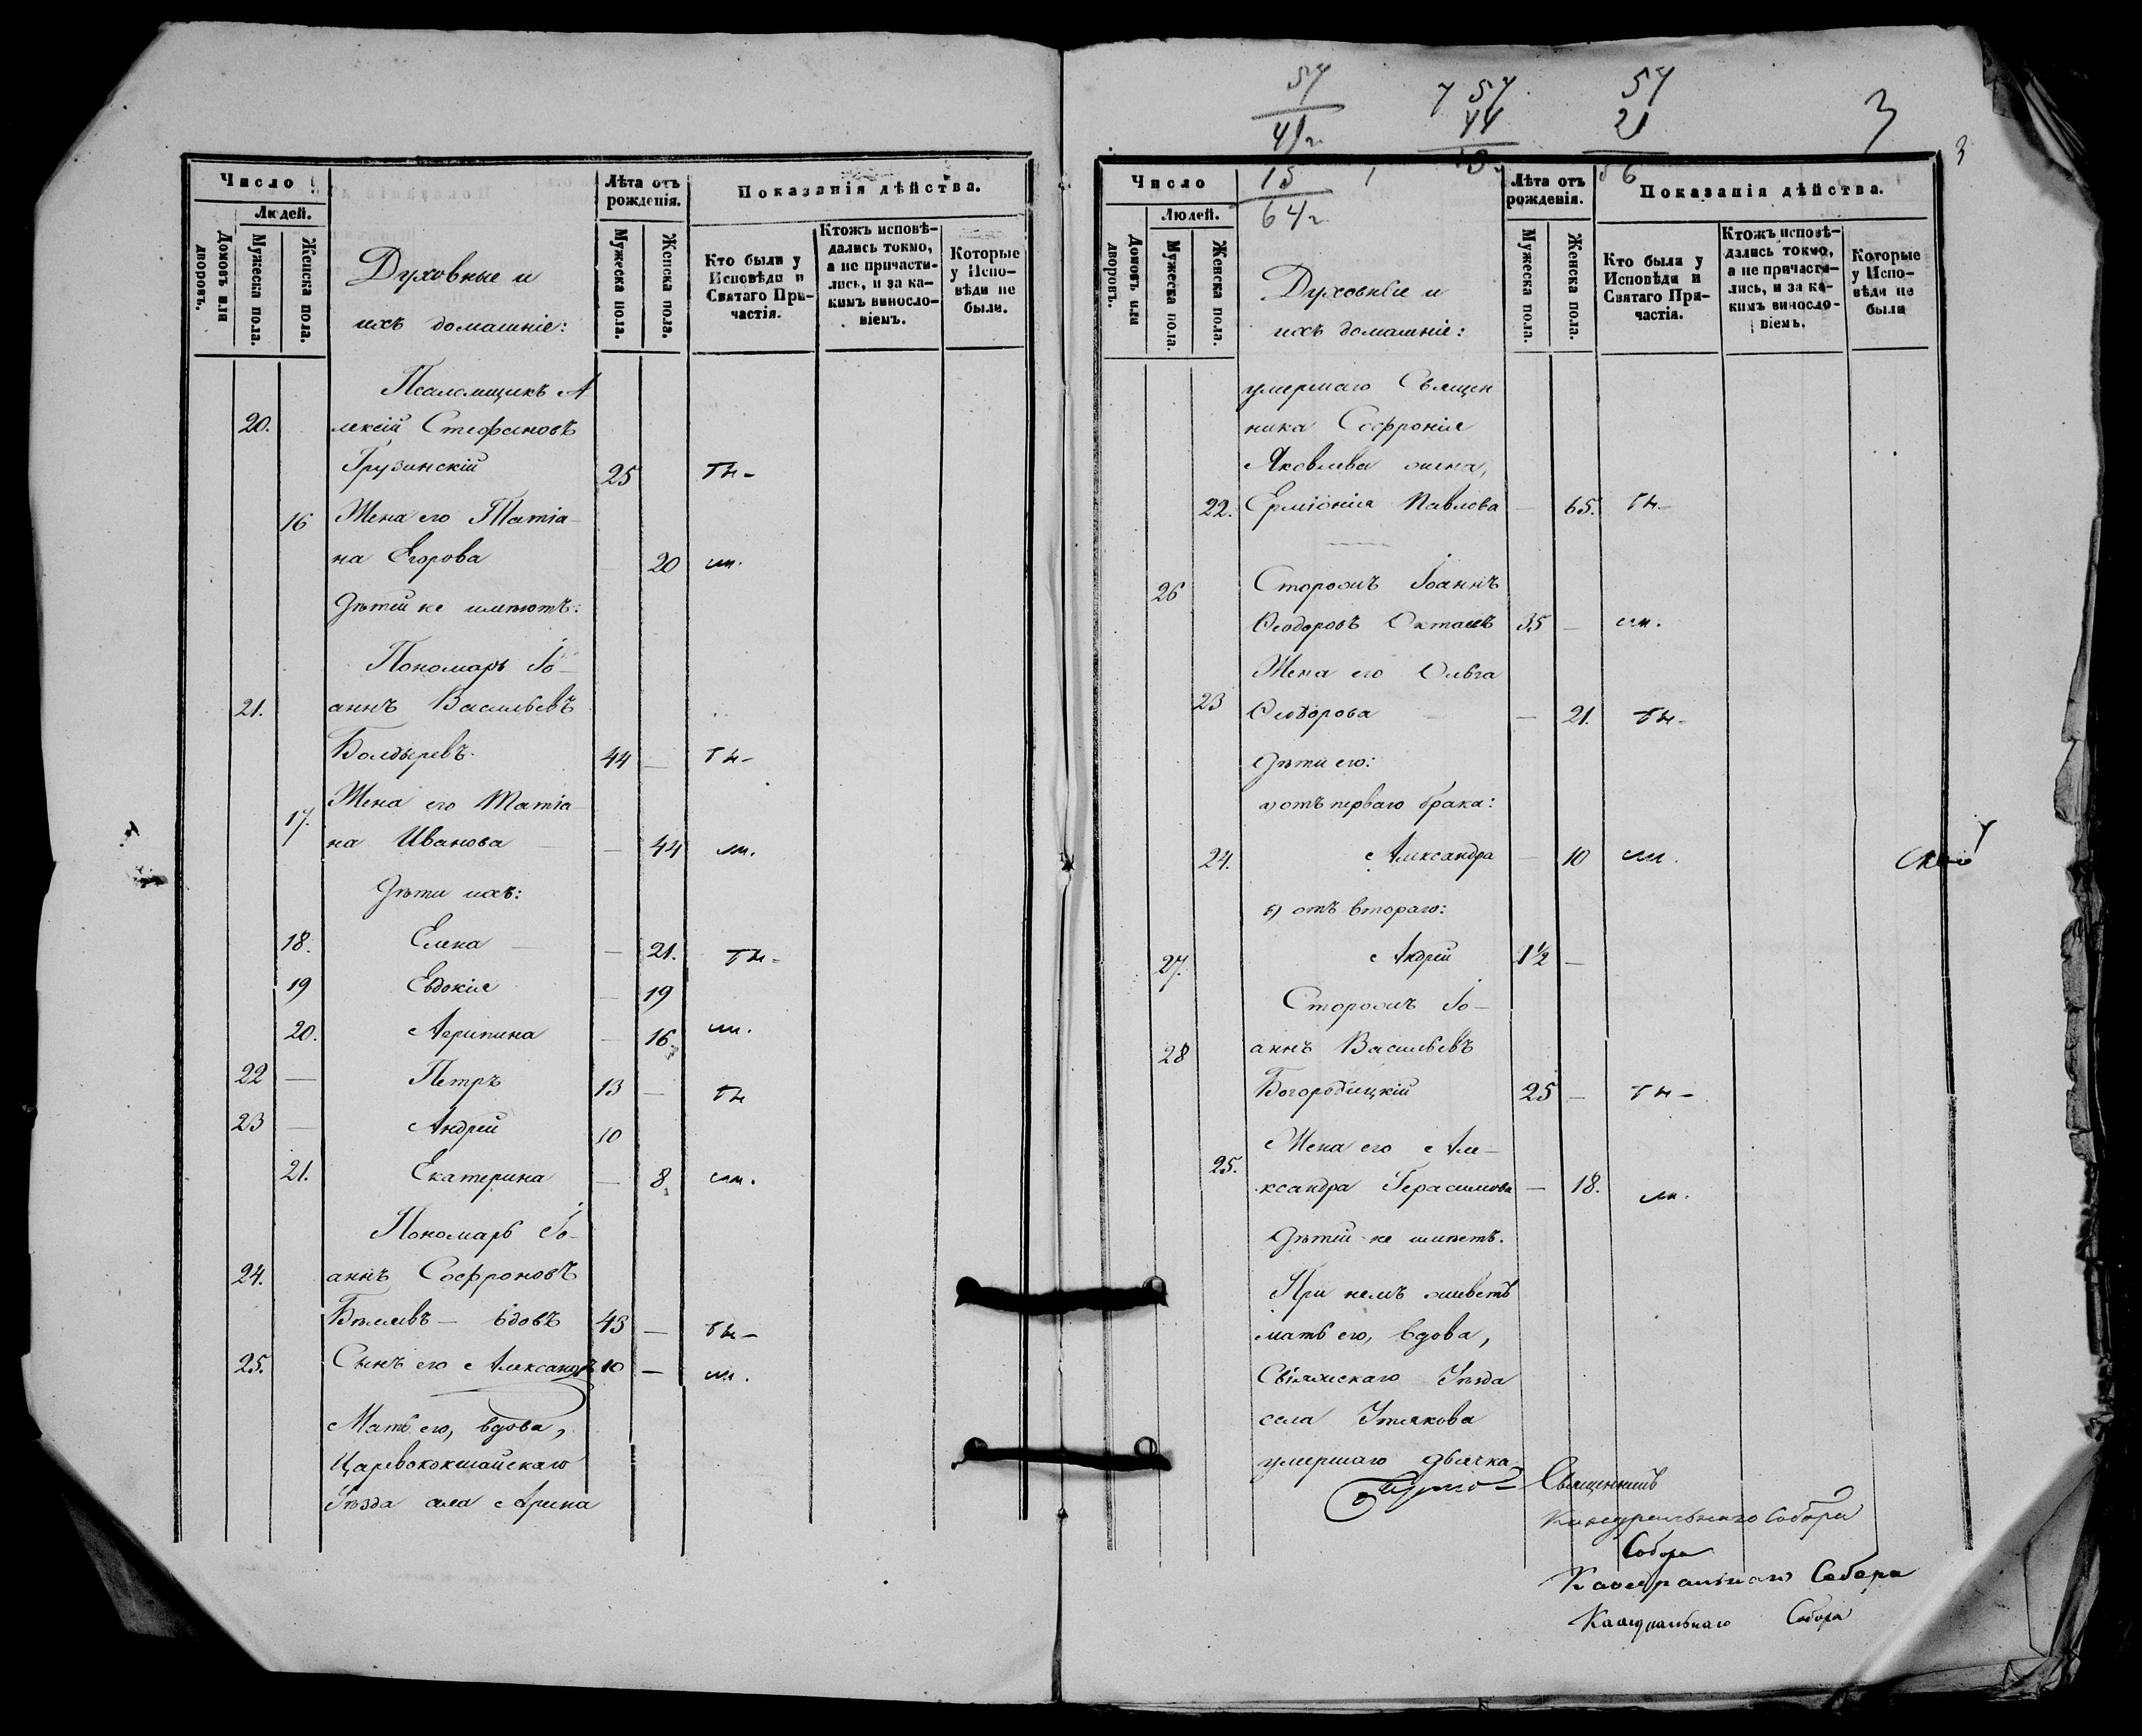 Число
Людей.
Домовъ или дворовъ.
Мужеска пола.
Женска пола.
Духовные и
ихъ домашніе:
Лѣта отъ рожденія.
Мужеска пола.
Женска пола.
Показанія дѣйства.
Кто были у Исповѣди и Святаго Причастія.
Ктожъ исповѣ-
дались токмо,
а не причасти-
лись, и за ка-
кимъ винosло-
віемъ.
Которые
у Испо-
вѣди не
были.
Псаломщикъ А
20. лексій Стефановъ
Грузинскій 25 тн-
16 Жена его Татіа-
на Егорова 20 ли.
Дѣтей не имѣютъ:
Пономарь Іо-
21. аннъ Васильевъ
Болдыревъ. 44 — тн-
17. Жена его Татіа-
на Иванова — — 44 ли.
Дѣти ихъ:
18. Елена — — 21. тн-
19 Евдокія — 19
20. Агрипина — 16. ли.
22 — Петръ 13 — тн
23 — Андрей 10
21. Екатерина — 8 ли.
Пономарь Іо-
24. аннъ Софроновъ
Бѣляевъ — вдовъ 43 — тн-
25. Сынъ его Александръ 10 — ли.
Мать его, вдова,
Царевококшайскаго
Уѣзда села Арина
54 7 54 54 3
41 44 21
3
15
64
Число
Людей.
Домовъ или дворовъ.
Мужеска пола.
Женска пола.
Духовные и
ихъ домашніе:
Лѣта отъ рожденія.
Мужеска пола.
Женска пола.
Показанія дѣйства.
Кто были у Исповѣди и Святаго Причастія.
Ктожъ исповѣ-
дались токмо,
а не причасти-
лись, и за ка-
кимъ винosло-
віемъ.
Которые
у Испо-
вѣди не
были
умершаго Священ
ника Софронія
Яковлева жена,
22. Ерміонія Павлова — 65. тн-
26 Сторожъ Іоаннъ
Ѳеодоровъ Октаевъ 35 — ли.
Жена его Ольга
23 Ѳеодорова — — 21. тн-
Дѣти его:
а) отъ перваго брака:
24. Александра — 10 ли.
б) отъ втораго:
27. Андрей 1½ —
Сторожъ Іо-
28 аннъ Васильевъ
Богородицкій 25 — тн-
Жена его Але-
25. ксандра Герасимова — 18. ли.
Дѣтей не имѣетъ.
При немъ живетъ
мать его, вдова,
Свіяжскаго Уѣзда
села Утякова
умершаго дьячка
Священникъ
Каѳедральнаго Собора
Собора
Каѳедральнаго Собора
Каѳедральнаго Собора